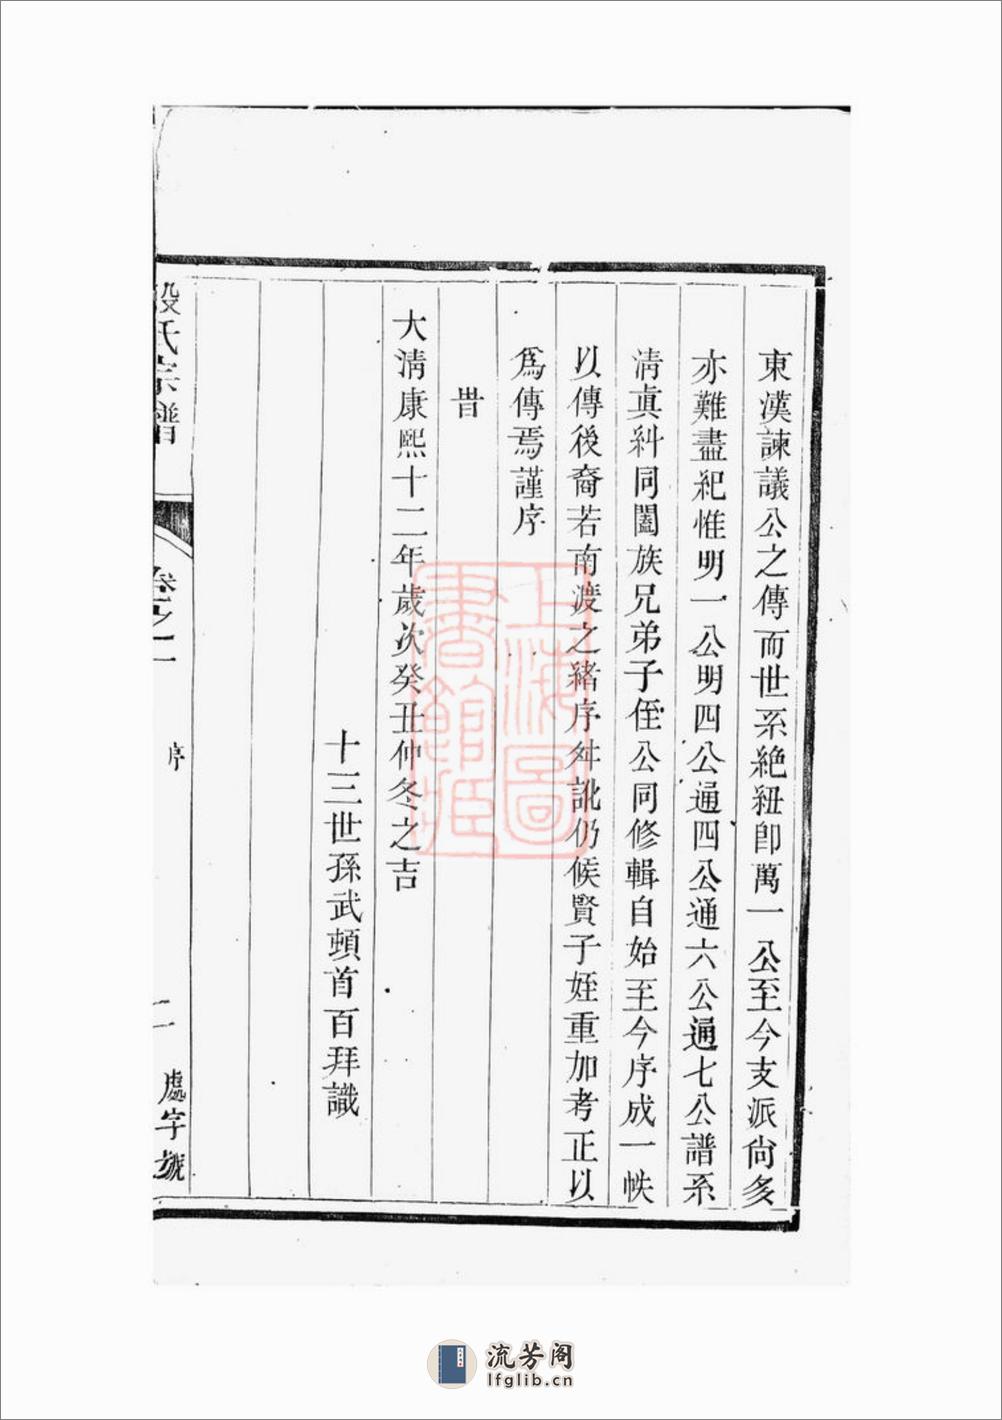 東漢諫議公之傳而世系絶紐卽萬一公至今支派尙多
亦難盡紀惟明一公明四公通四公通六公通七公譜系
淸真糾同闔族兄弟子侄公同修輯自始至今序成一帙
以傳後裔若南渡之緒序舛訛仍候賢子姪重加考正以
爲傳焉謹序
旹
大淸康熙十二年歲次癸丑仲冬之吉
十三世孫武頓首百拜識
段氏宗譜
卷之一
序
二
處字號
上海圖書館藏
流芳阁
lfglib.cn